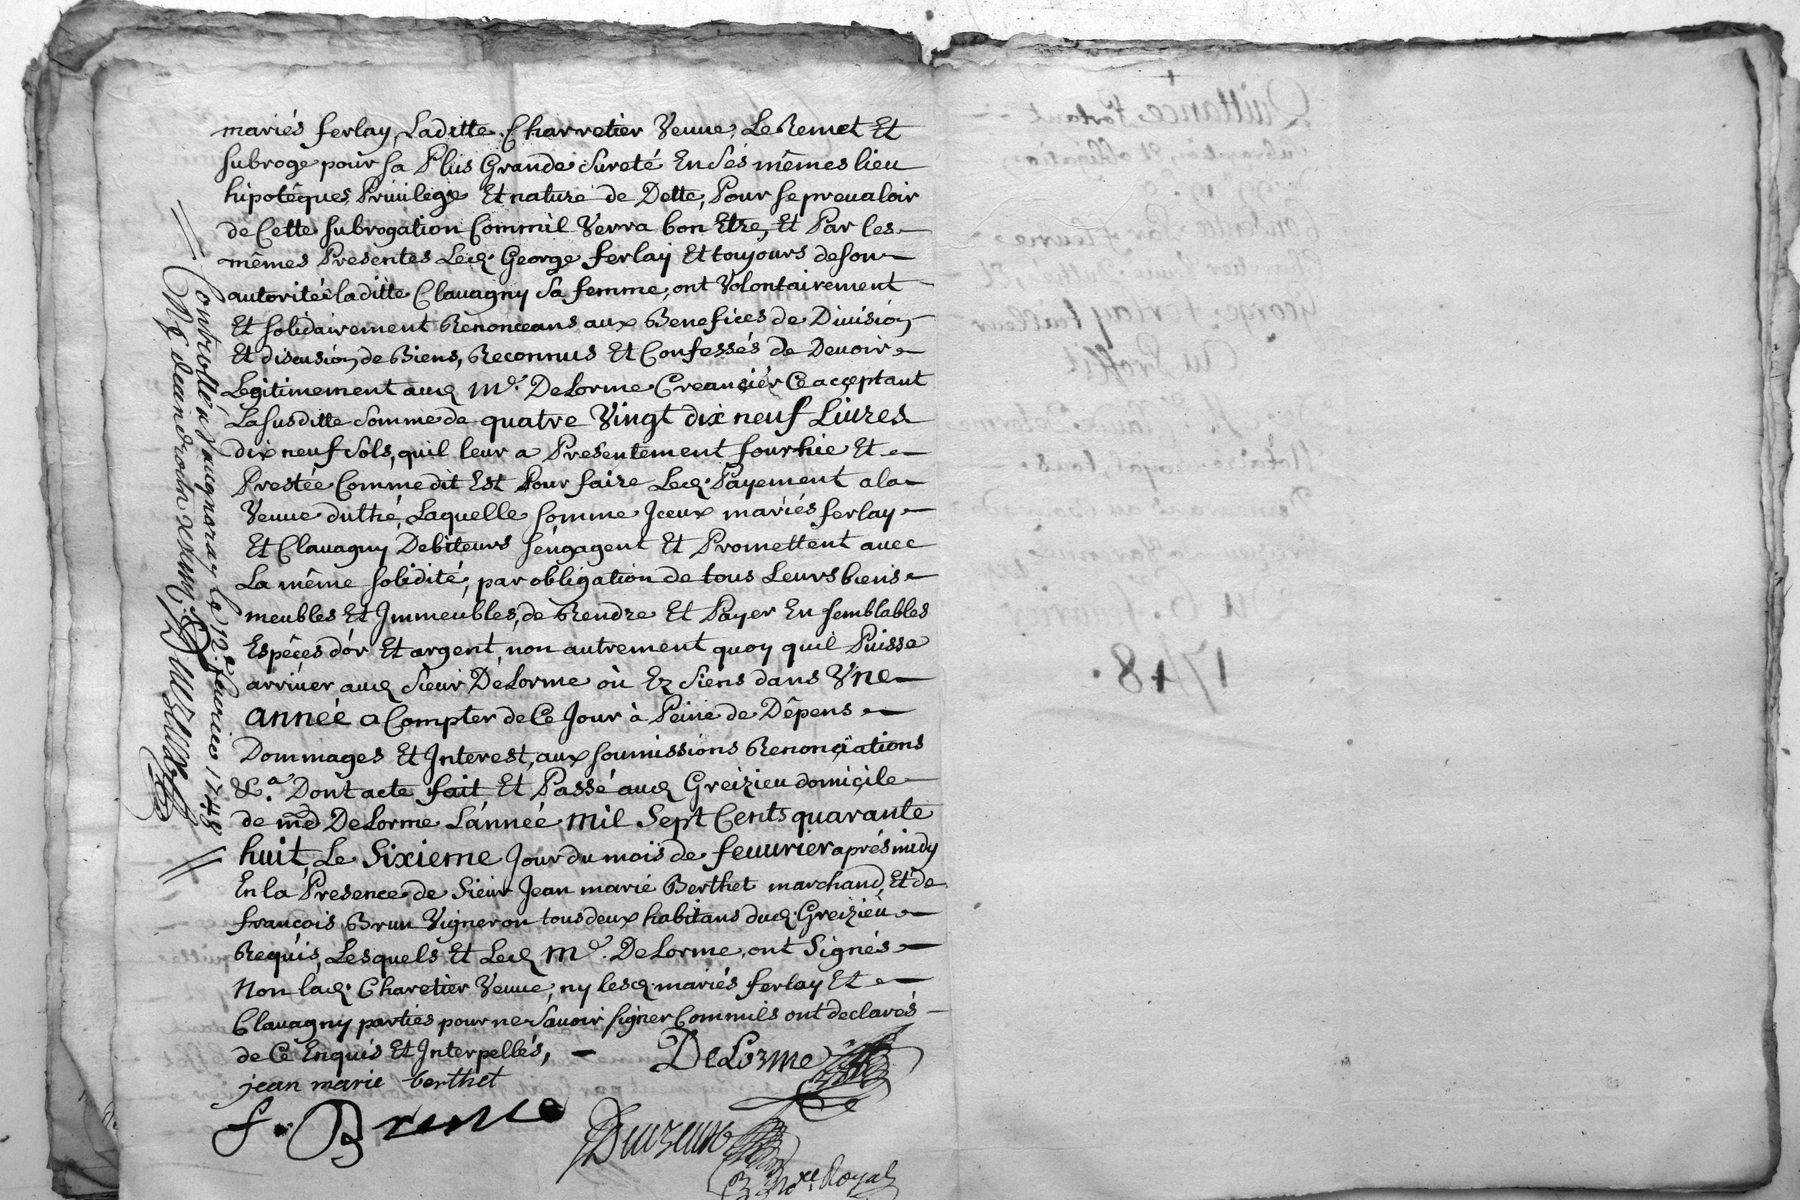 mariés ferlay, Laditte Charretier Veuve, Le Remet Et
subroge pour sa Plus Grande sureté En sés mêmes lieu
hipotêques, Privilége Et nature de Dette, Pour se prevaloir
de Cette subrogation Commil Verra bon Etre, Et Par les
mêmes Presentes Led. George ferlay Et toujours de son
autorité laditte Clavagny sa femme, ont Volontairement
Et solidairement Renonceans aux Benefices de Division
Et discusion de Biens, Reconnus Et Confessés de Devoir
Legitimement aud. Me. DeLorme Creancier Ce acceptant
La susditte somme de quatre Vingt dix neuf Livres
dix neuf sols, quil leur a Presentement fournie Et
Prestée Comme dit Est Pour faire Led. Payement a la
Veuve duthé, Laquelle somme Iceux mariés ferlay
Et Clavagny Debiteurs s'engagent Et Promettent avec
La même solidité, par obligation de tous Leurs biens
meubles Et Immeubles, de Rendre Et Payer En semblables
Espêces d'or Et argent, non autrement quoy quil Puisse
arriver aud. Sieur DeLorme où Ez Siens dans Vne
année a Compter de Ce Jour à Peine de Dêpens
Dommages Et Interest, aux soumissions Renonciations
&.a Dont acte fait Et Passé aud. Greizieu domicile
de med DeLorme L'année mil Sept Cents quarante
huit, Le Sixieme Jour du mois de feuvrier aprés midy
En la Presence de Sieur Jean marie Berthet marchand, Et de
françois Brun Vigneron tous deux habitans dud. Greizieu
Requis, Lesquels Et Led. Me. DeLorme, ont Signés
Non lad. Charetier Veuve, ny lesd. mariés ferlay Et
Clavagny parties pour ne Savoir signer Commils ont declarés
de Ce Enquis Et Interpellés,
DeLorme
jean marie berthet
f. Brun
Duuzeux
Nore. Royal
Controllé a le 12e. fevrier 1748